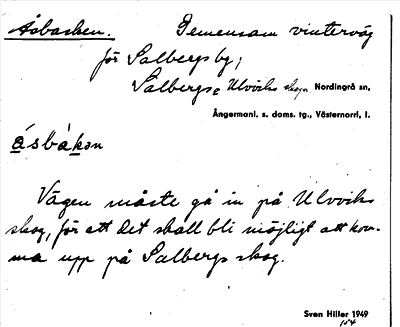 Åsbacken. Gemensam vinterväg
för Salbergs by;
Salbergs o Ulvviks skogar Nordingrå sn,
Ångermanl. s. doms. tg., Västernorrl. l.
åsbákən
Vägen måste gå in på Ulvviks
skog, för att det skall bli möjligt att kom-
ma upp på Salbergs skog.
Sven Hiller 1949
154